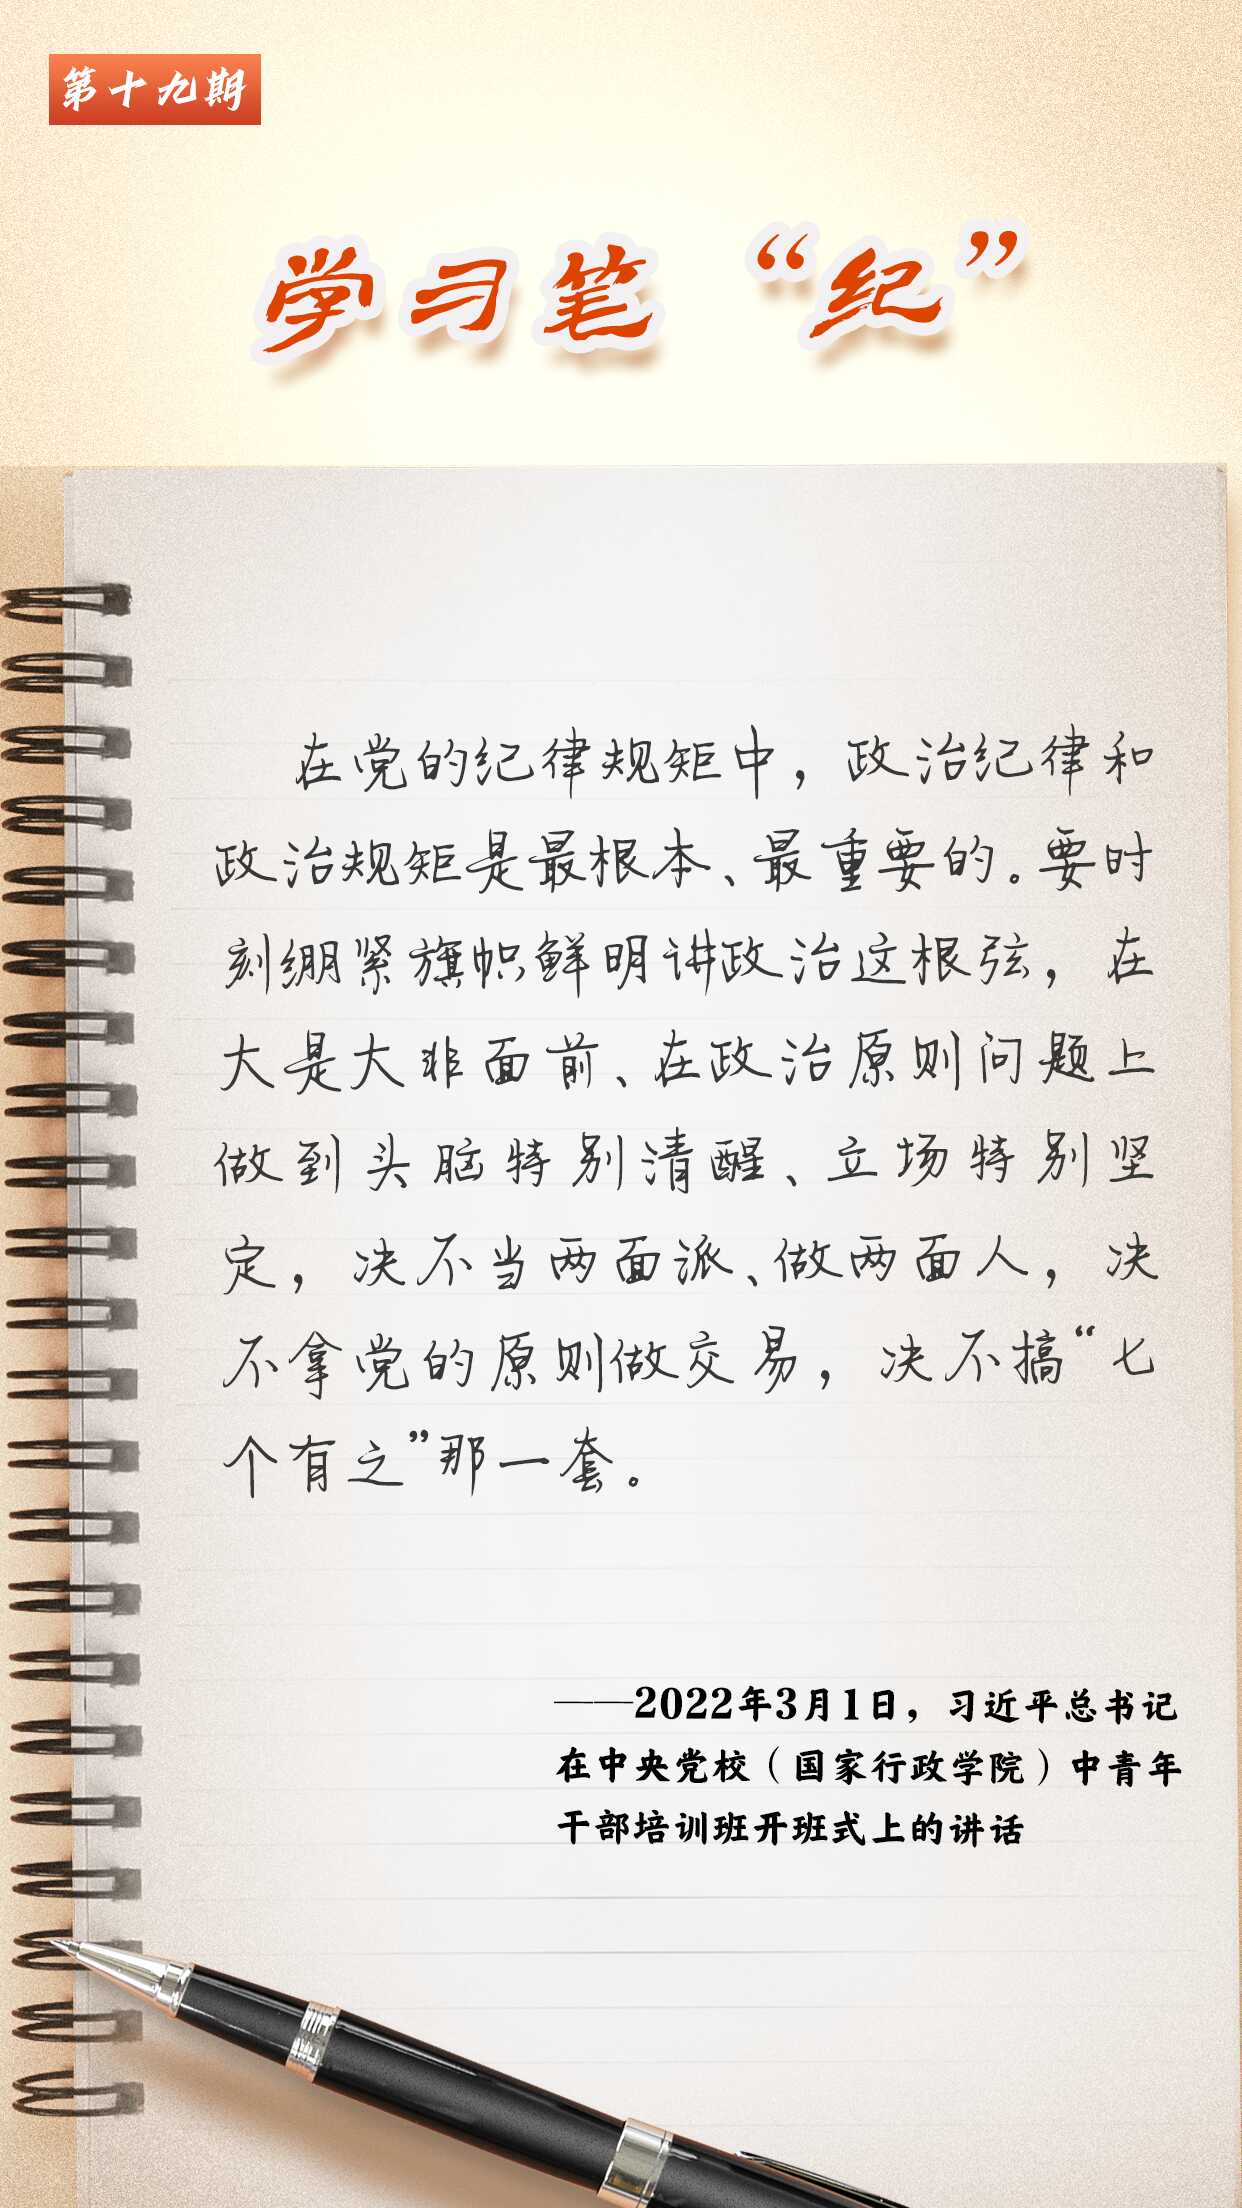 第十九期
学习笔“纪”
在党的纪律规矩中，政治纪律和
政治规矩是最根本、最重要的。要时
刻绷紧旗帜鲜明讲政治这根弦，在
大是大非面前、在政治原则问题上
做到头脑特别清醒、立场特别坚
定，决不当两面派、做两面人，决
不拿党的原则做交易，决不搞“七
个有之”那一套。
——2022年3月1日，习近平总书记
在中央党校（国家行政学院）中青年
干部培训班开班式上的讲话